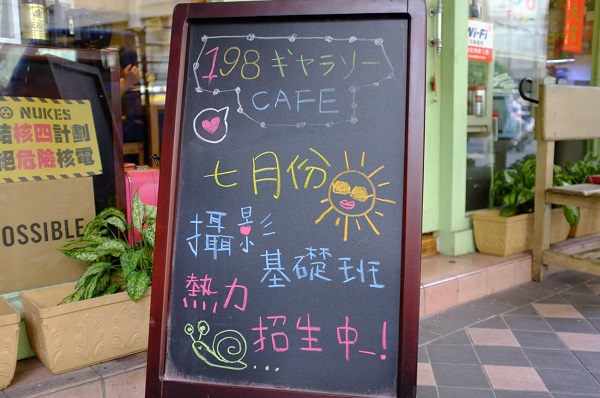 198 ギャラソー
CAFE
七月份
攝影
基礎班
熱力
招生中~!
NUKES
核四計劃
危險核電
OSSIBLE
Wi-Fi